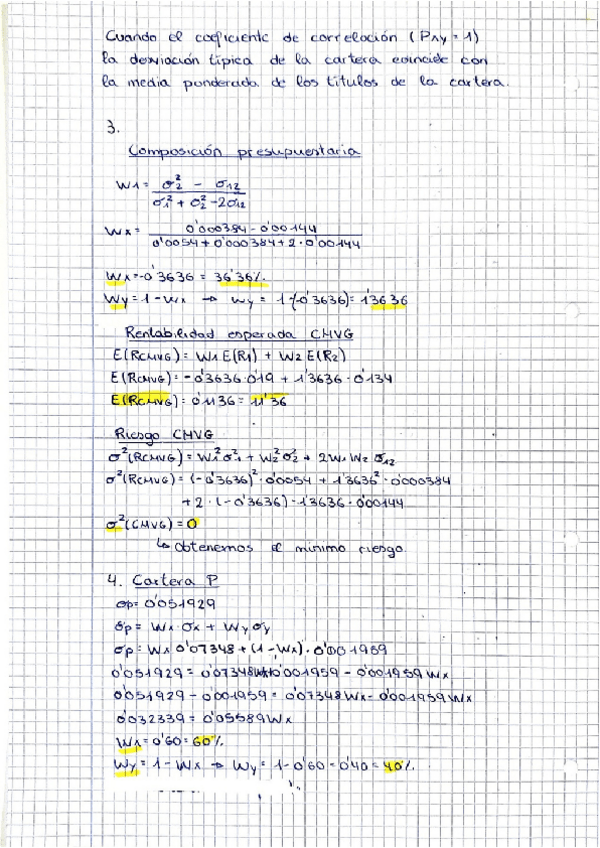 Cuando el coeficiente de correlación (Pxy = 1)
la desviación típica de la cartera coincide con
la media ponderada de los títulos de la cartera.
3.
Composición presupuestaria
W1 = σ2² - σ12 / σ1² + σ2² - 2σ12
Wx = 0'000384 - 0'00144 / 0'0054 + 0'000384 + 2 · 0'00144
Wx = -0'3636 = 36'36%.
Wy = 1 - Wx → Wy = 1-(-0'3636) = 1'3636
Rentabilidad esperada CMVG
E(RCMVG) = W1 E(R1) + W2 E(R2)
E(RCMVG) = -0'3636 · 0'19 + 1'3636 · 0'134
E(RCMVG) = 0'1136 = 11'36
Riesgo CMVG
σ²(RCMVG) = W1² σ1² + W2² σ2² + 2W1 W2 σ12
σ²(RCMVG) = (-0'3636)² · 0'0054 + 1'3636² · 0'000384
+ 2 · (-0'3636) · 1'3636 · 0'00144
σ²(CMVG) = 0
↳ obtenemos el mínimo riesgo.
4. Cartera P
σp = 0'051929
σp = Wx · σx + Wy σy
σp = Wx 0'07348 + (1 - Wx) · 0'001959
0'051929 = 0'07348Wx + 0'001959 - 0'001959 Wx
0'051929 - 0'001959 = 0'07348 Wx - 0'001959 Wx
0'032339 = 0'05589 Wx
Wx = 0'60 = 60%.
Wy = 1 - Wx → Wy = 1 - 0'60 = 0'40 = 40%.